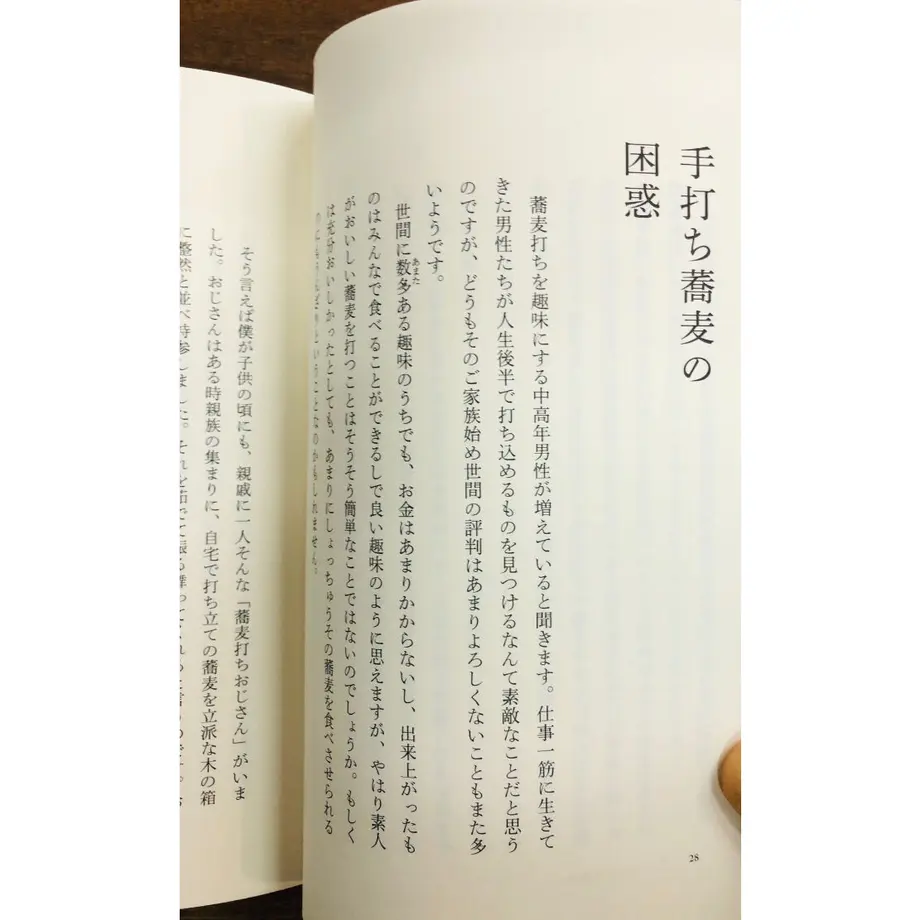 手打ち蕎麦の
困惑
蕎麦打ちを趣味にする中高年男性が増えていると聞きます。仕事一筋に生きて
きた男性たちが人生後半で打ち込めるものを見つけるなんて素敵なことだと思う
のですが、どうもそのご家族始め世間の評判はあまりよろしくないこともまた多
いようです。
世間に数多ある趣味のうちでも、お金はあまりかからないし、出来上がったも
あまた
のはみんなで食べることができるしで良い趣味のように思えますが、やはり素人
がおいしい蕎麦を打つことはそうそう簡単なことではないのでしょうか。もしく
は充分おいしかったとしても、あまりにしょっちゅうその蕎麦を食べさせられる
のにもうんざりということなのかもしれません。
28
そう言えば僕が子供の頃にも、親戚に一人そんな「蕎麦打ちおじさん」がいま
した。おじさんはある時親族の集まりに、自宅で打ち立ての蕎麦を立派な木の箱
に整然と並べ持参しました。それを茹でて振る舞ってくれ